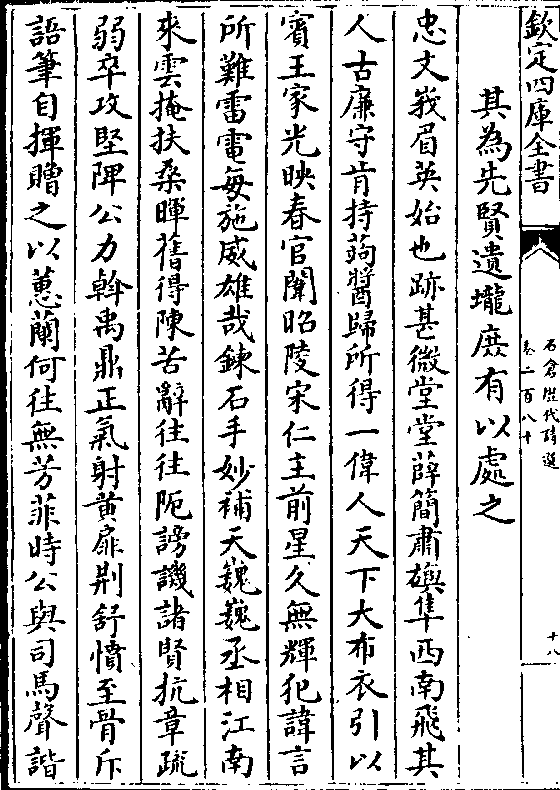 欽定四庫全書
石倉歷代詩選
卷二百八十
十八
其為先賢遺壠庶有以處之
忠文峩眉英始也跡甚微堂堂薛簡肅䴏隼西南飛其
人古廉守肯持蒟醬歸所得一偉人天下大布衣引以
賓王家光映春官闈昭陵宋仁主前星久無輝犯諱言
所難雷電每施威雄哉鍊石手妙補天巍巍丞相江南
來雲掩扶桑暉舊得陳苦辭往往阨謗譏諸賢抗章疏
弱卒攻堅陴公力斡禹鼎正氣射黄扉荆舒憤至骨斥
語筆自揮贈之以蕙蘭何往無芳菲時公與司馬聲諧